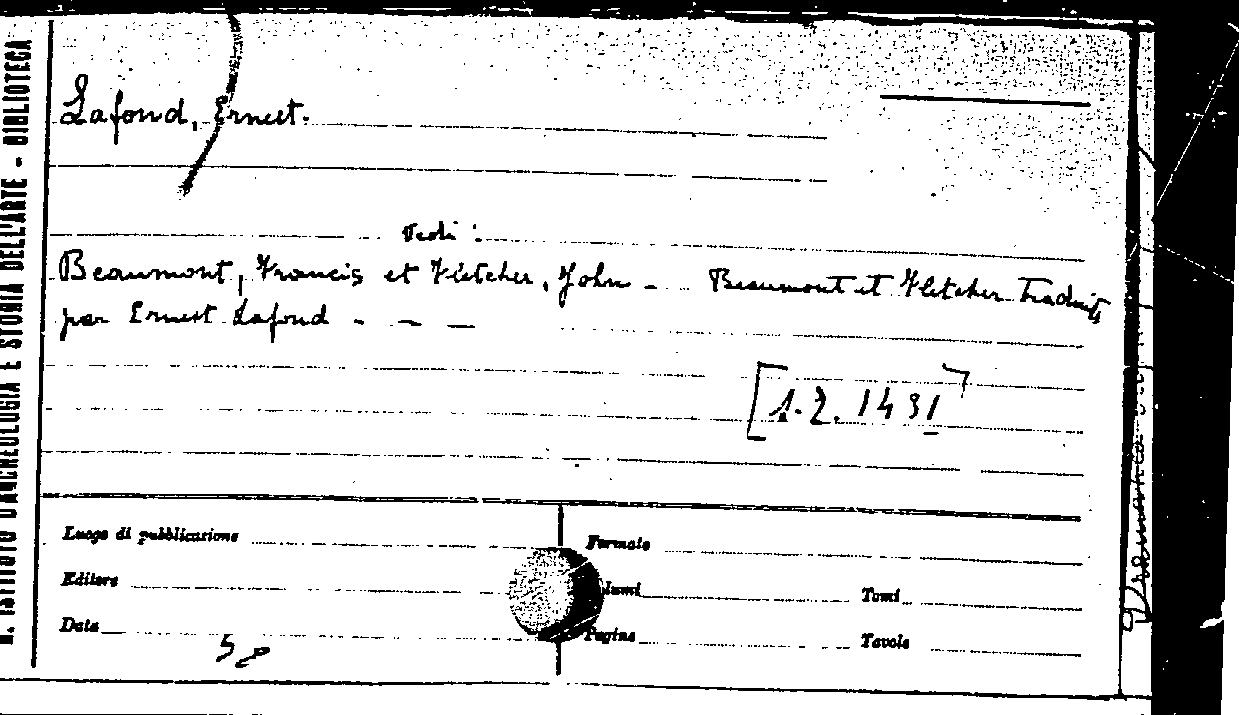 R. ISTITUTO D'ARCHEOLOGIA E STORIA DELL'ARTE - BIBLIOTECA
Lafond, Ernest.
Vedi :
Beaumont, Francis et Fletcher, John - Beaumont et Fletcher Traduits
par Ernest Lafond - - -
[1.2.1431]
Luogo di pubblicazione
Formato
Editore
Volumi
Tomi
Data
Pagine
Tavole